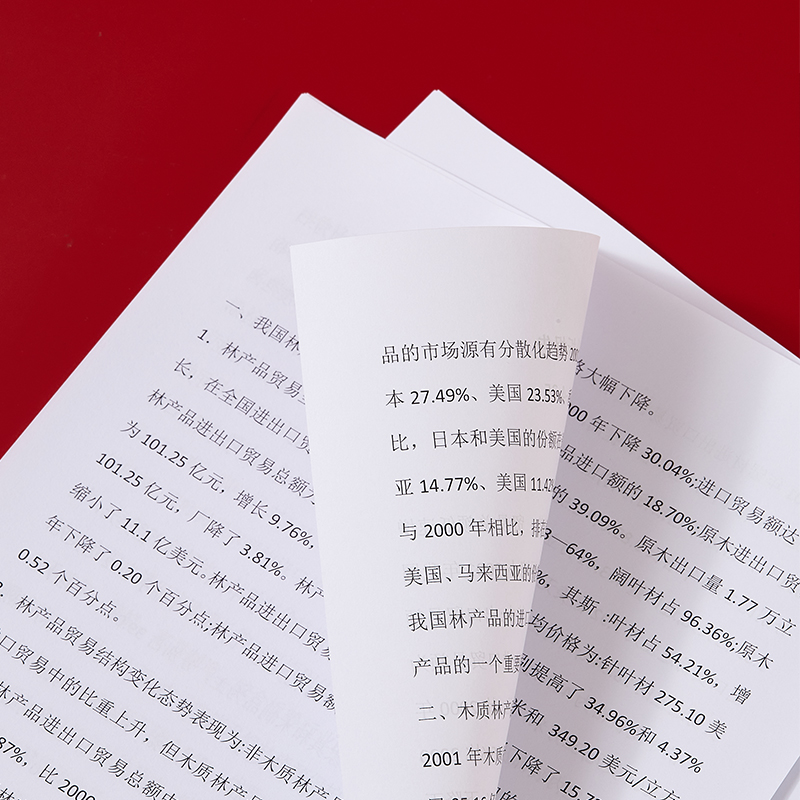 一、我国林
1. 林产品贸易
长，在全国进出口贸
林产品进出口贸易总额
为 101.25 亿元，增长 9.76%，
101.25 亿元，厂降了 3.81%。林
缩小了 11.1 亿美元。林产品进出口贸易
年下降了 0.20 个百分点;林产品进口贸易额
0.52 个百分点。
林产品贸易结构变化态势表现为:非木质林产
口贸易中的比重上升，但木质林产品
林产品进出口贸易总额中
87%，比 2000
品的市场源有分散化趋势
本 27.49%、美国 23.53%、
比，日本和美国的份额
亚 14.77%、美国 11.42
与 2000 年相比，排
美国、马来西亚的
我国林产品的进口
产品的一个重要
二、木质林产
2001 年木质
大幅下降。
00 年下降 30.04%;进口贸易额达
品进口额的 18.70%;原木进出口贸
的 39.09%。原木出口量 1.77 万立
3—64%，阔叶材占 96.36%;原木
%，其斯 :叶材占 54.21%，增
均价格为:针叶材 275.10 美
提高了 34.96%和 4.37%
米和 349.20 美元/立方
下降了 15.7